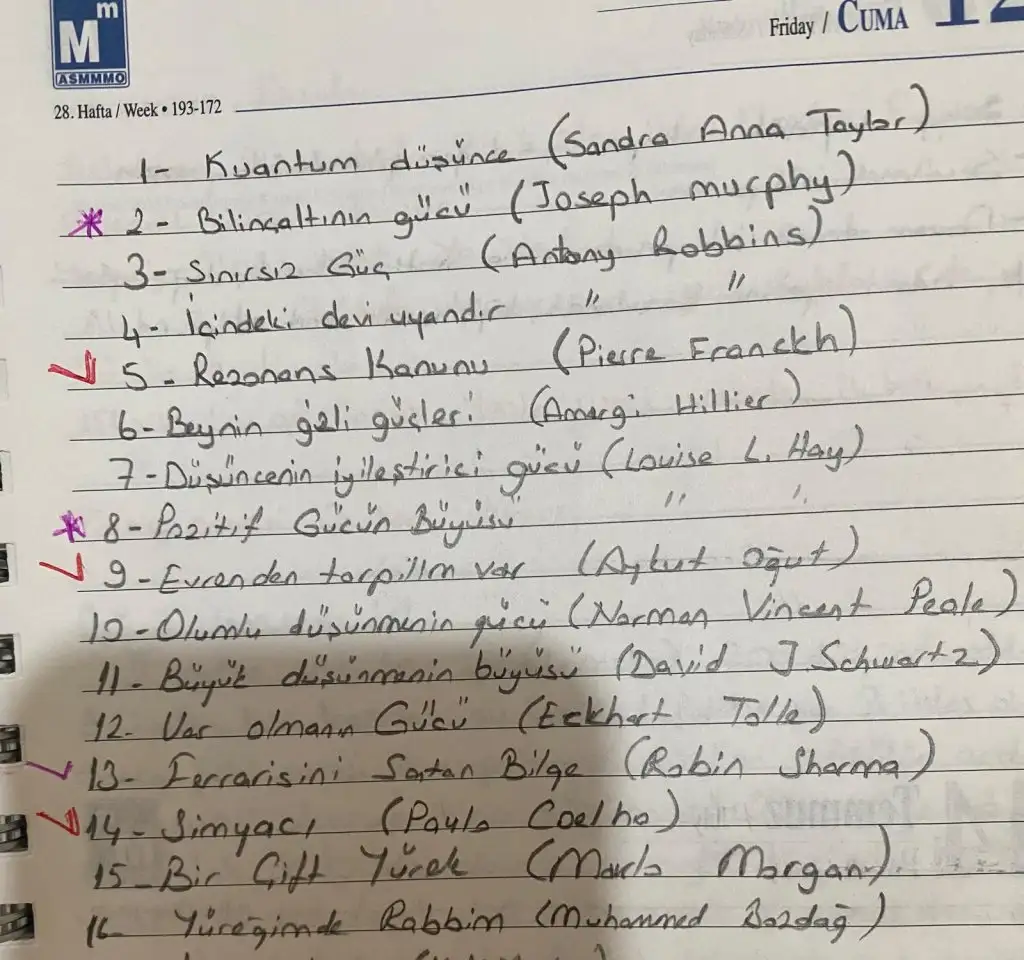 Mm
ASMMMO
Friday / CUMA 12
28. Hafta / Week • 193-172
1- Kuantum düşünce (Sandra Anna Taylor)
* 2- Bilinçaltının gücü (Joseph murphy)
3- Sınırsız Güç (Antony Robbins)
4- İçindeki devi uyandır " "
5- Rezonans Kanunu (Pierre Franckh)
6- Beynin gizli güçleri (Amargi Hillier)
7- Düşüncenin iyileştirici gücü (Louise L. Hay)
* 8- Pozitif Gücün Büyüsü " "
9- Evrenden torpilim var (Aykut Oğut)
10- Olumlu düşünmenin gücü (Norman Vincent Peale)
11- Büyük düşünmenin büyüsü (David J Schwartz)
12- Var olmanın Gücü (Eckhart Tolle)
13- Ferrarisini Satan Bilge (Robin Sharma)
14- Simyacı (Paulo Coelho)
15- Bir Çift Yürek (Marlo Morgan)
16- Yüreğimde Rabbim (Muhammed Bozdağ)